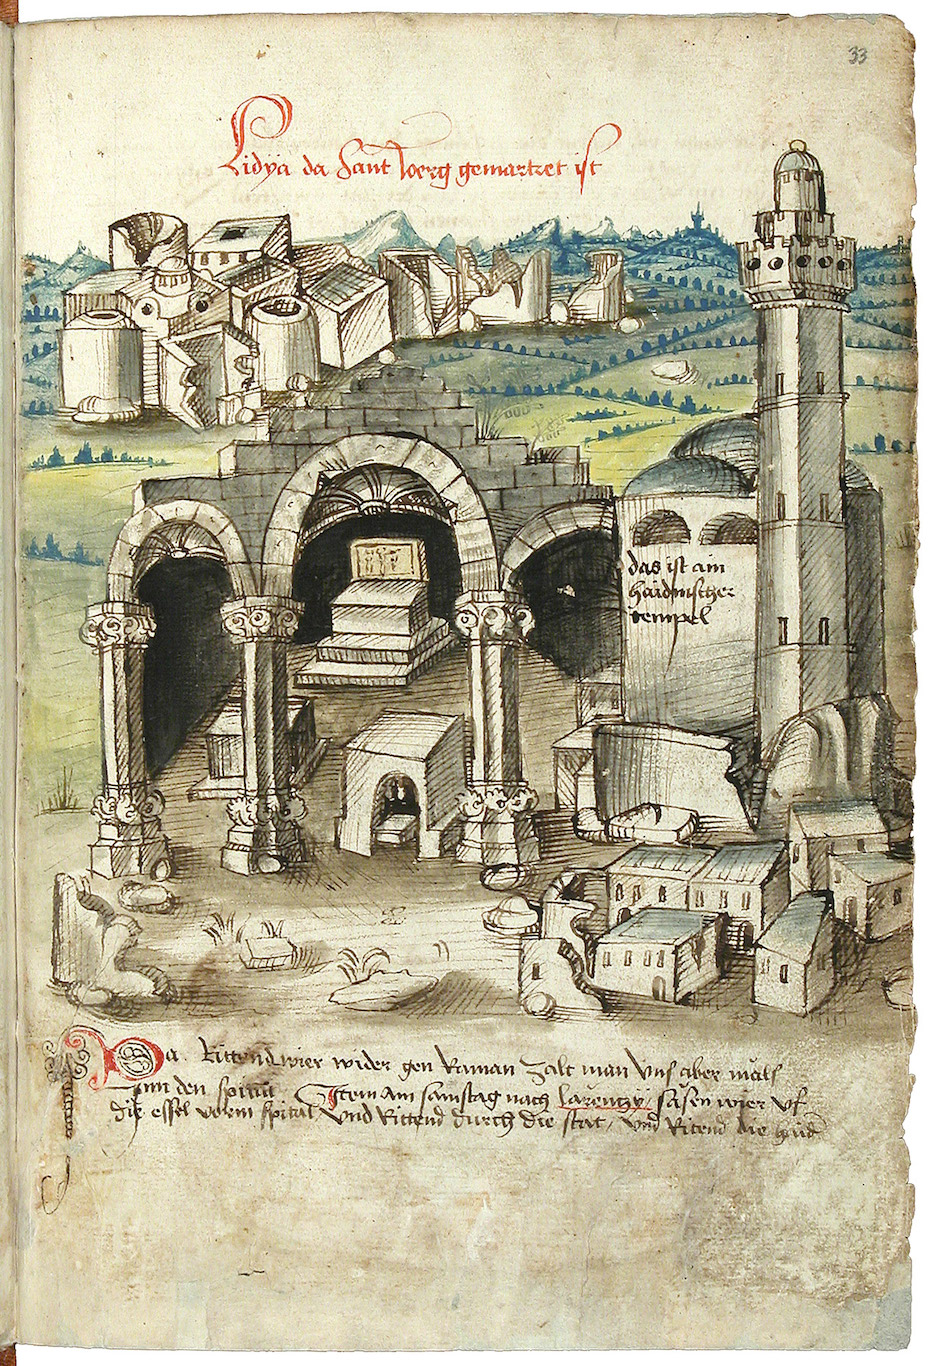 33
Lidya da Sant Joerg gemartret ist
das ist ain
haidnischer
tempel
Da Rittend wier wider gen Raman Zalt man vns aber mals
Inn den spittal Item Am samstag nach larentzy / sasen wier vf
die essel vorm spital vnd Rittend durch die stat / vnd Ritend die